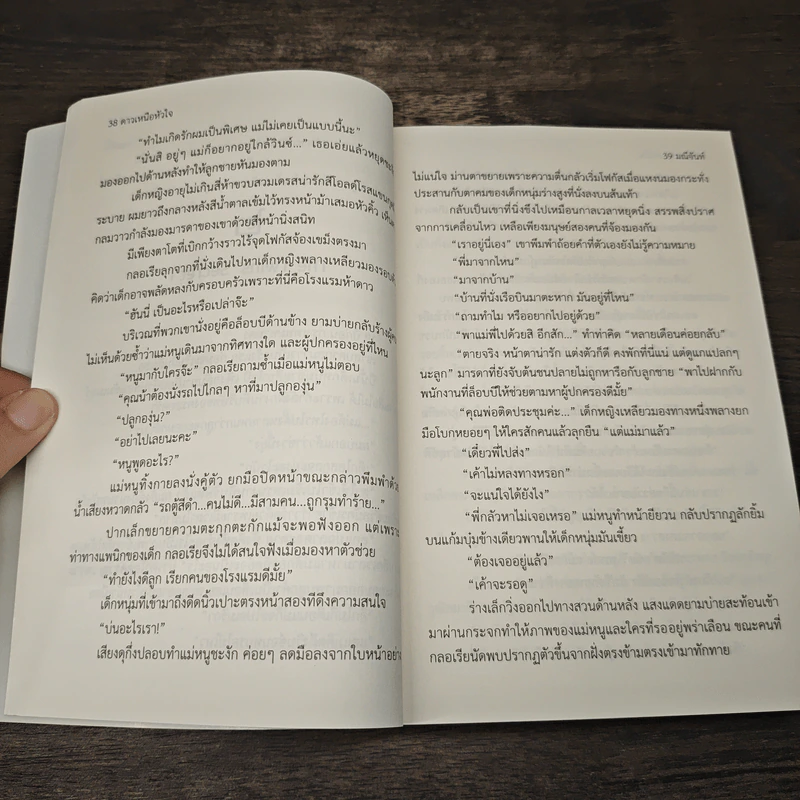 38 ดาวเหนือหัวใจ
“ทำไมเกิดรักผมเป็นพิเศษ แม่ไม่เคยเป็นแบบนี้นะ”
“นั่นสิ อยู่ๆ แม่ก็อยากอยู่ใกล้วินซ์...” เธอเอ่ยแล้วหยุดชะงัก
มองออกไปด้านหลังทำให้ลูกชายหันมองตาม
เด็กหญิงอายุไม่เกินสี่ห้าขวบสวมเดรสน่ารักสีโอลด์โรสแขน
ระบาย ผมยาวถึงกลางหลังสีน้ำตาลเข้มไว้ทรงหน้าม้าเสมอหัวคิ้ว
กลมวาวกำลังมองมารดาของเขาด้วยสีหน้านิ่งสนิท
มีเพียงตาโตที่เบิกกว้างราวไร้จุดโฟกัสจ้องเขม็งตรงมา
กลอเรียลุกจากที่นั่งเดินไปหาเด็กหญิงพลางเหลียวมองรอบตัว
คิดว่าเด็กอาจพลัดหลงกับครอบครัวเพราะที่นี่คือโรงแรมห้าดาว
“ฮันนี่ เป็นอะไรหรือเปล่าจ๊ะ”
บริเวณที่พวกเขานั่งอยู่คือล็อบบีด้านข้าง ยามบ่ายกลับร้างผู้คน
ไม่เห็นด้วยซ้ำว่าแม่หนูเดินมาจากทิศทางใด และผู้ปกครองอยู่ที่ไหน
“หนูมากับใครจ๊ะ” กลอเรียถามซ้ำเมื่อแม่หนูไม่ตอบ
“คุณน้าต้องนั่งรถไปไกลๆ หาที่มาปลูกองุ่น”
“ปลูกองุ่น?”
“อย่าไปเลยนะคะ”
“หนูพูดอะไร?”
แม่หนูทิ้งกายลงนั่งคู้ตัว ยกมือปิดหน้าขณะกล่าวพึมพำด้วย
น้ำเสียงหวาดกลัว “รถตู้สีดำ...คนไม่ดี...มีสามคน...ถูกรุมทำร้าย...”
ปากเล็กขยายความตะกุกตะกักแม้จะพอฟังออก แต่เพราะ
ท่าทางแพนิกของเด็ก กลอเรียจึงไม่ได้สนใจฟังเมื่อมองหาตัวช่วย
“ทำยังไงดีลูก เรียกคนของโรงแรมดีมั้ย”
เด็กหนุ่มที่เข้ามาถึงดีดนิ้วเปาะตรงหน้าสองทีดึงความสนใจ
“บ่นอะไรเรา!”
เสียงดุกึ่งปลอบทำแม่หนูชะงัก ค่อยๆ ลดมือลงจากใบหน้าอย่าง
39 มณีจันท์
ไม่แน่ใจ ม่านตาขยายเพราะความตื่นกลัวเริ่มโฟกัสเมื่อแหงนมองกระทั่ง
ประสานกับตาคมของเด็กหนุ่มร่างสูงที่นั่งลงบนส้นเท้า
กลับเป็นเขาที่นิ่งขึงไปเหมือนกาลเวลาหยุดนิ่ง สรรพสิ่งปราศ
จากการเคลื่อนไหว เหลือเพียงมนุษย์สองคนที่จ้องมองกัน
“เราอยู่นี่เอง” เขาพึมพำถ้อยคำที่ตัวเองยังไม่รู้ความหมาย
“พี่มาจากไหน”
“มาจากบ้าน”
“บ้านที่นั่งเรือบินมาตะหาก มันอยู่ที่ไหน”
“ถามทำไม หรืออยากไปอยู่ด้วย”
“พาแม่พี่ไปด้วยสิ อีกสัก...” ทำท่าคิด “หลายเดือนค่อยกลับ”
“ตายจริง หน้าตาน่ารัก แต่งตัวก็ดี คงพักที่นี่แน่ แต่ดูแกแปลกๆ
นะลูก” มารดาที่ยังจับต้นชนปลายไม่ถูกหารือกับลูกชาย “พาไปฝากกับ
พนักงานที่ล็อบบีให้ช่วยตามหาผู้ปกครองดีมั้ย”
“คุณพ่อติดประชุมค่ะ...” เด็กหญิงเหลียวมองทางหนึ่งพลางยก
มือโบกหยอยๆ ให้ใครสักคนแล้วลุกยืน “แต่แม่มาแล้ว”
“เดี๋ยวพี่ไปส่ง”
“เค้าไม่หลงทางหรอก”
“จะแน่ใจได้ยังไง”
“พี่กลัวหาไม่เจอเหรอ” แม่หนูทำหน้ายียวน กลับปรากฏลักยิ้ม
บนแก้มบุ๋มข้างเดียวพานให้เด็กหนุ่มมันเขี้ยว
“ต้องเจออยู่แล้ว”
“เค้าจะรอดู”
ร่างเล็กวิ่งออกไปทางสวนด้านหลัง แสงแดดยามบ่ายสะท้อนเข้า
มาผ่านกระจกทำให้ภาพของแม่หนูและใครที่รออยู่พร่าเลือน ขณะคนที่
กลอเรียนัดพบปรากฏตัวขึ้นจากฝั่งตรงข้ามตรงเข้ามาทักทาย